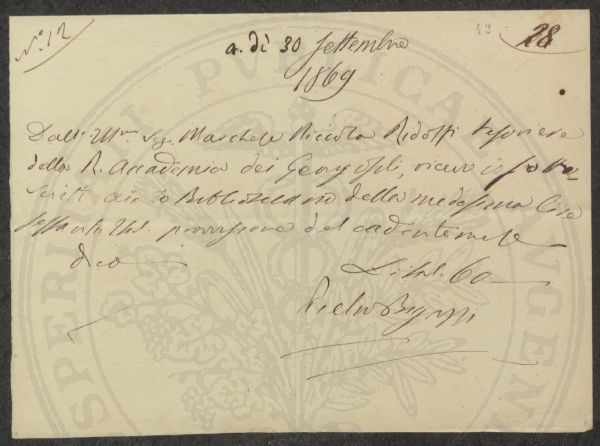 N.º 12
42
28
a. dì 30 Settembre
1869
Dall' Ill.mo Sig. Marchese Niccola Ridolfi Tesoriere
della R. Accademia dei Georgofili, ricevo io sotto
scritto aiuto Bibliotecario della medesima Lire
sessanta Ital. provvisione del cadente mese
dico
L. Ital. 60
Pietro Bigazzi